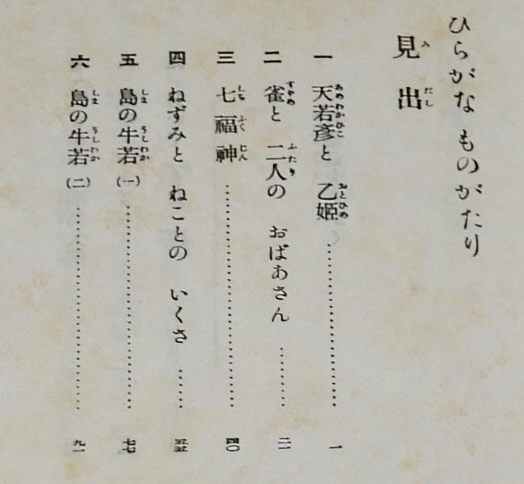 ひらがな ものがたり
見出
一 天若彦と 乙姫 一
二 雀と 二人の おばあさん 二一
三 七福神 四〇
四 ねずみと ねことの いくさ 五五
五 島の牛若(一) 七七
六 島の牛若(二) 九一